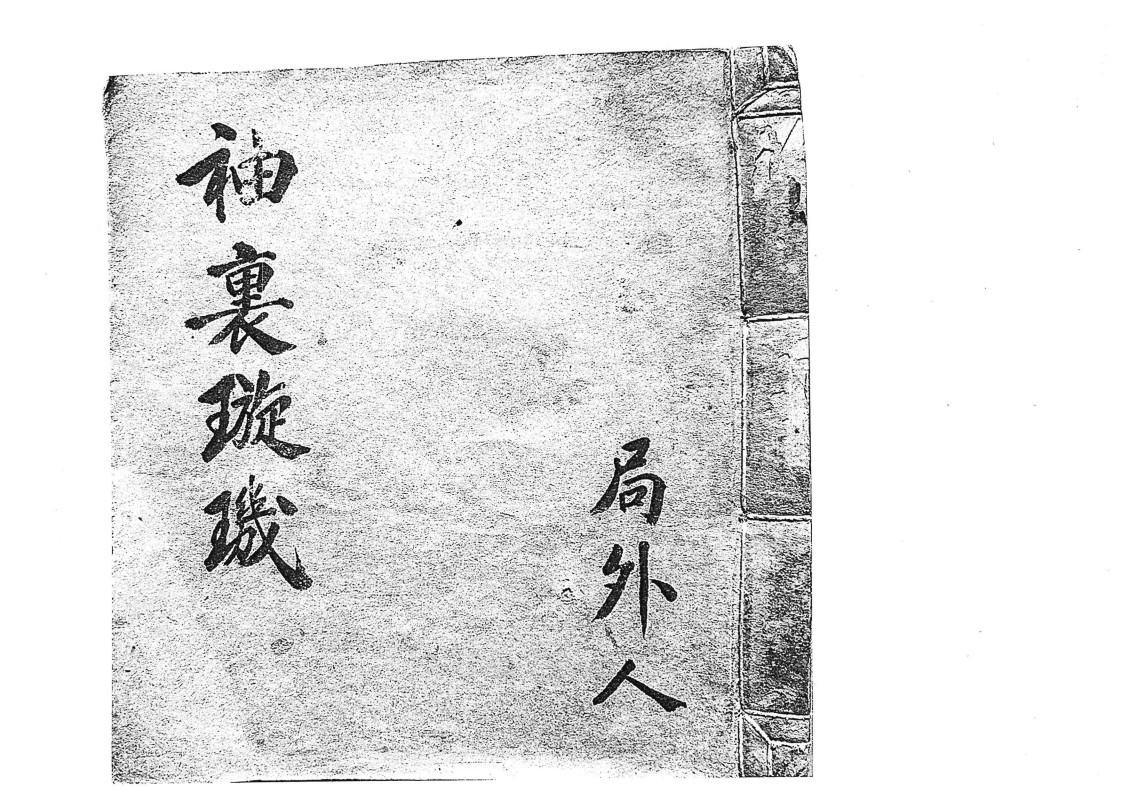 局外人
袖裏璇璣